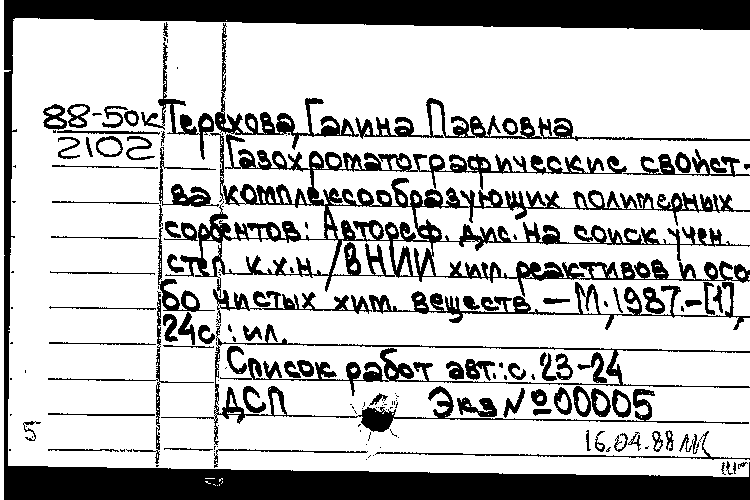 88-50к Терехова, Галина Павловна
2102 Газохроматографические свойст-
ва комплексообразующих полимерных
сорбентов: Автореф. дис. на соиск. учен.
степ. к.х.н. /ВНИИ хим. реактивов и осо
бо чистых хим. веществ. — М., 1987. - [1],
24с.: ил.
Список работ авт.: с. 23-24
ДСП Экз № 00005
16.04.88